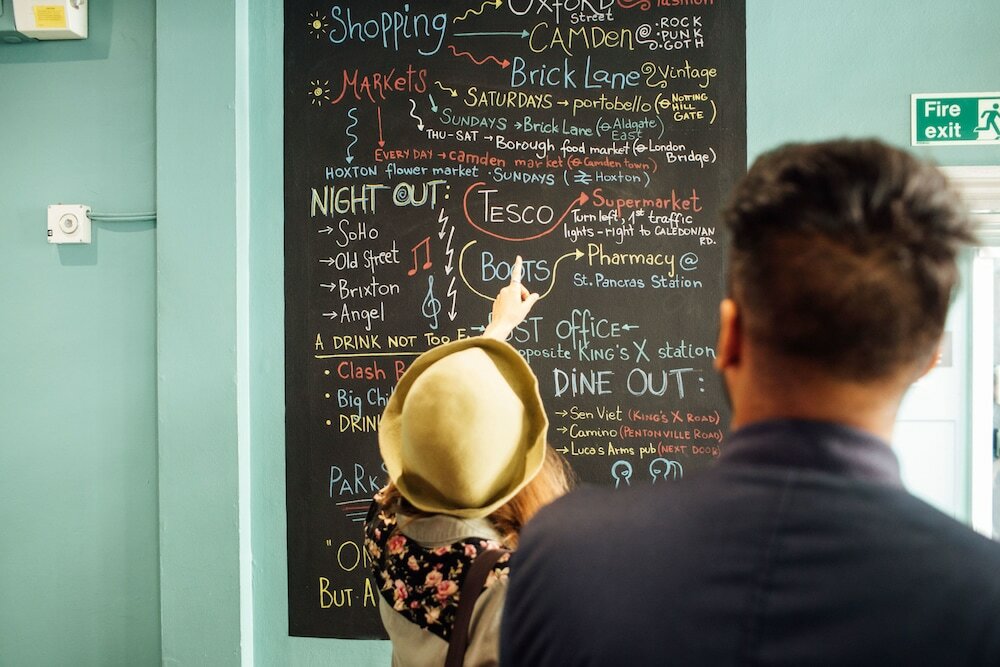 Shopping → OXFORD Street → fashion
→ CAMDEN @ • ROCK • PUNK • GOTH
→ Brick Lane Vintage
MARKETS
→ SATURDAYS → portobello (⊖ NOTTING HILL GATE)
→ SUNDAYS → Brick Lane (⊖ Aldgate East)
→ THU-SAT → Borough food market (⊖ London Bridge)
EVERY DAY → camden market (⊖ Camden town)
HOXTON flower market • SUNDAYS (Hoxton)
NIGHT OUT:
→ SoHo
→ Old Street
→ Brixton
→ Angel
TESCO → Supermarket
Turn left, 1st traffic
lights - right to CALEDONIAN
RD.
BOOTS → Pharmacy @
St. Pancras Station
A DRINK NOT TOO
• Clash
• Big
• DRIN
OFFICE ←
opposite KING'S X station
DINE OUT:
→ Sen Viet (KING'S X ROAD)
→ Camino (PENTONVILLE ROAD)
→ Luca's Arms pub (NEXT DOOR)
PARKS
"O
BUT A
Fire
exit